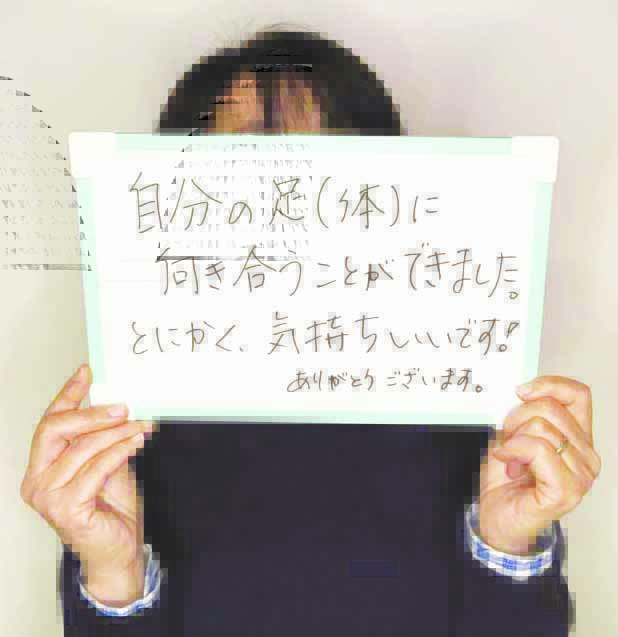 自分の足(体)に
向き合うことができました。
とにかく、気持ちいいです!
ありがとうございます。